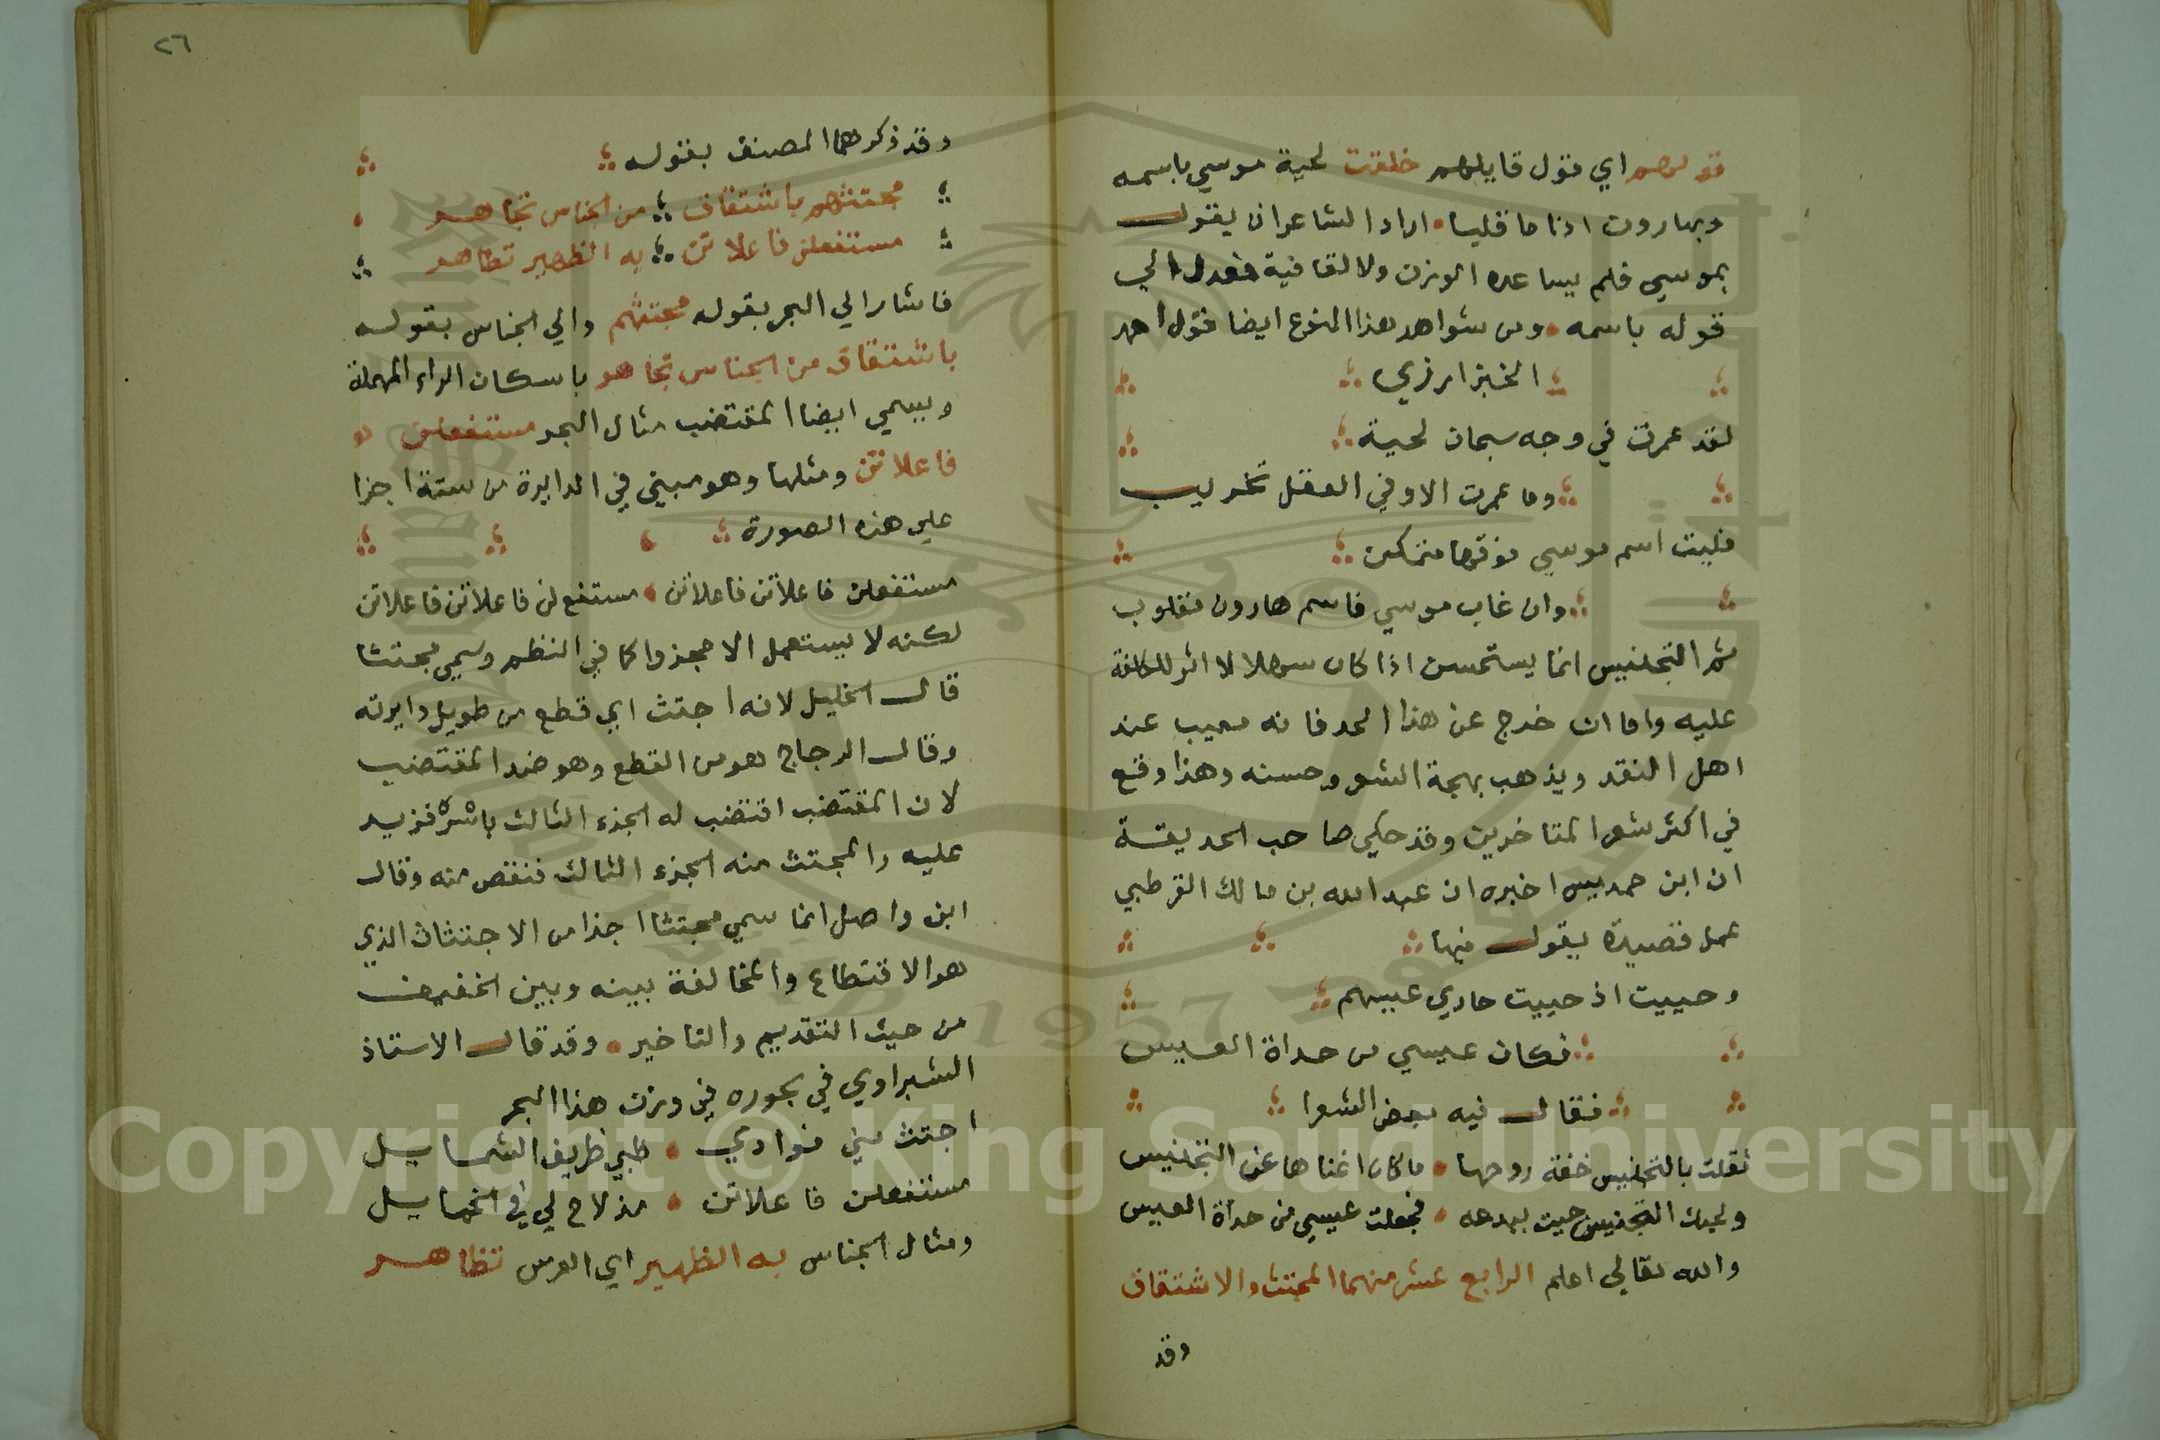 قولهم اي قول قايلهم خلقت لحية موسي باسمه
وبهاروت اذا ما قلبا اراد الشاعر ان يقول
بموسي فلم يساعده الوزن ولا القافية فعدل الي
قوله باسمه ومن شواهد هذا النوع ايضا قول احمد
الخبزارزي
لقد عمرت في وجه سبحان لحية
وما عمرت الا وفي العقل تخريب
فليت اسم موسي فوقها متمكن
وان غاب موسي فاسم هارون مقلوب
ثم التجنيس انما يستحسن اذا كان سهلا لا اثر للكلفة
عليه واما ان خرج عن هذا الحد فانه معيب عند
اهل النقد ويذهب بهجة الشعر وحسنه وهذا وقع
في اكثر شعر المتاخرين وقد حكي صاحب الحديقة
ان ابن حمديس اخبره ان عبد الله بن مالك القرطبي
عمل قصيدة يقول فيها
وحييت اذ حييت حادي عيسهم
فكان عيسي من حداة العيس
فقال فيه بعض الشعرا
ثقلت بالتجنيس خفة روحها ما كان اغناها عن التجنيس
ولحبك التجنيس جيت ببدعه فجعلت عيسي من حداة العيس
والله تعالي اعلم الرابع عشر منهما المجتث والاشتقاق
وقد
٢٦
وقد ذكرهما المصنف بقوله
مجتثهم باشتقاق من الجناس تجاهر
مستفعلن فاعلاتن به الظهير تظاهر
فاشار الي البحر بقوله مجتثهم والي الجناس بقوله
باشتقاق من الجناس تجاهر باسكان الراء المهملة
ويسمي ايضا المقتضب مثال البحر مستفعلن
فاعلاتن ومثلها وهو مبني في الدايرة من ستة اجزا
علي هذه الصورة
مستفعلن فاعلاتن فاعلاتن مستفع لن فاعلاتن فاعلاتن
لكنه لا يستعمل الا مجزوا كما في النظم وسمي مجتثا
قال الخليل لانه اجتث اي قطع من طويل دايرته
وقال الزجاج هو من القطع وهو ضد المقتضب
لان المقتضب اقتضب له الجزء الثالث باسره فزيد
عليه والمجتث منه الجزء الثالث فنقص منه وقال
ابن واصل انما سمي مجتثا اخذا من الاجتثاث الذي
هو الاقتطاع والمخالفة بينه وبين الخفيف
من حيث التقديم والتاخير وقد قال الاستاذ
الشبراوي في بحوره في وزن هذا البحر
اجتث مني فوادي ظبي ظريف الشمايل
مستفعلن فاعلاتن مذ لاح لي في الخمايل
ومثال الجناس به الظهير اي العرس تظاهر
Copyright © King Saud University
1957